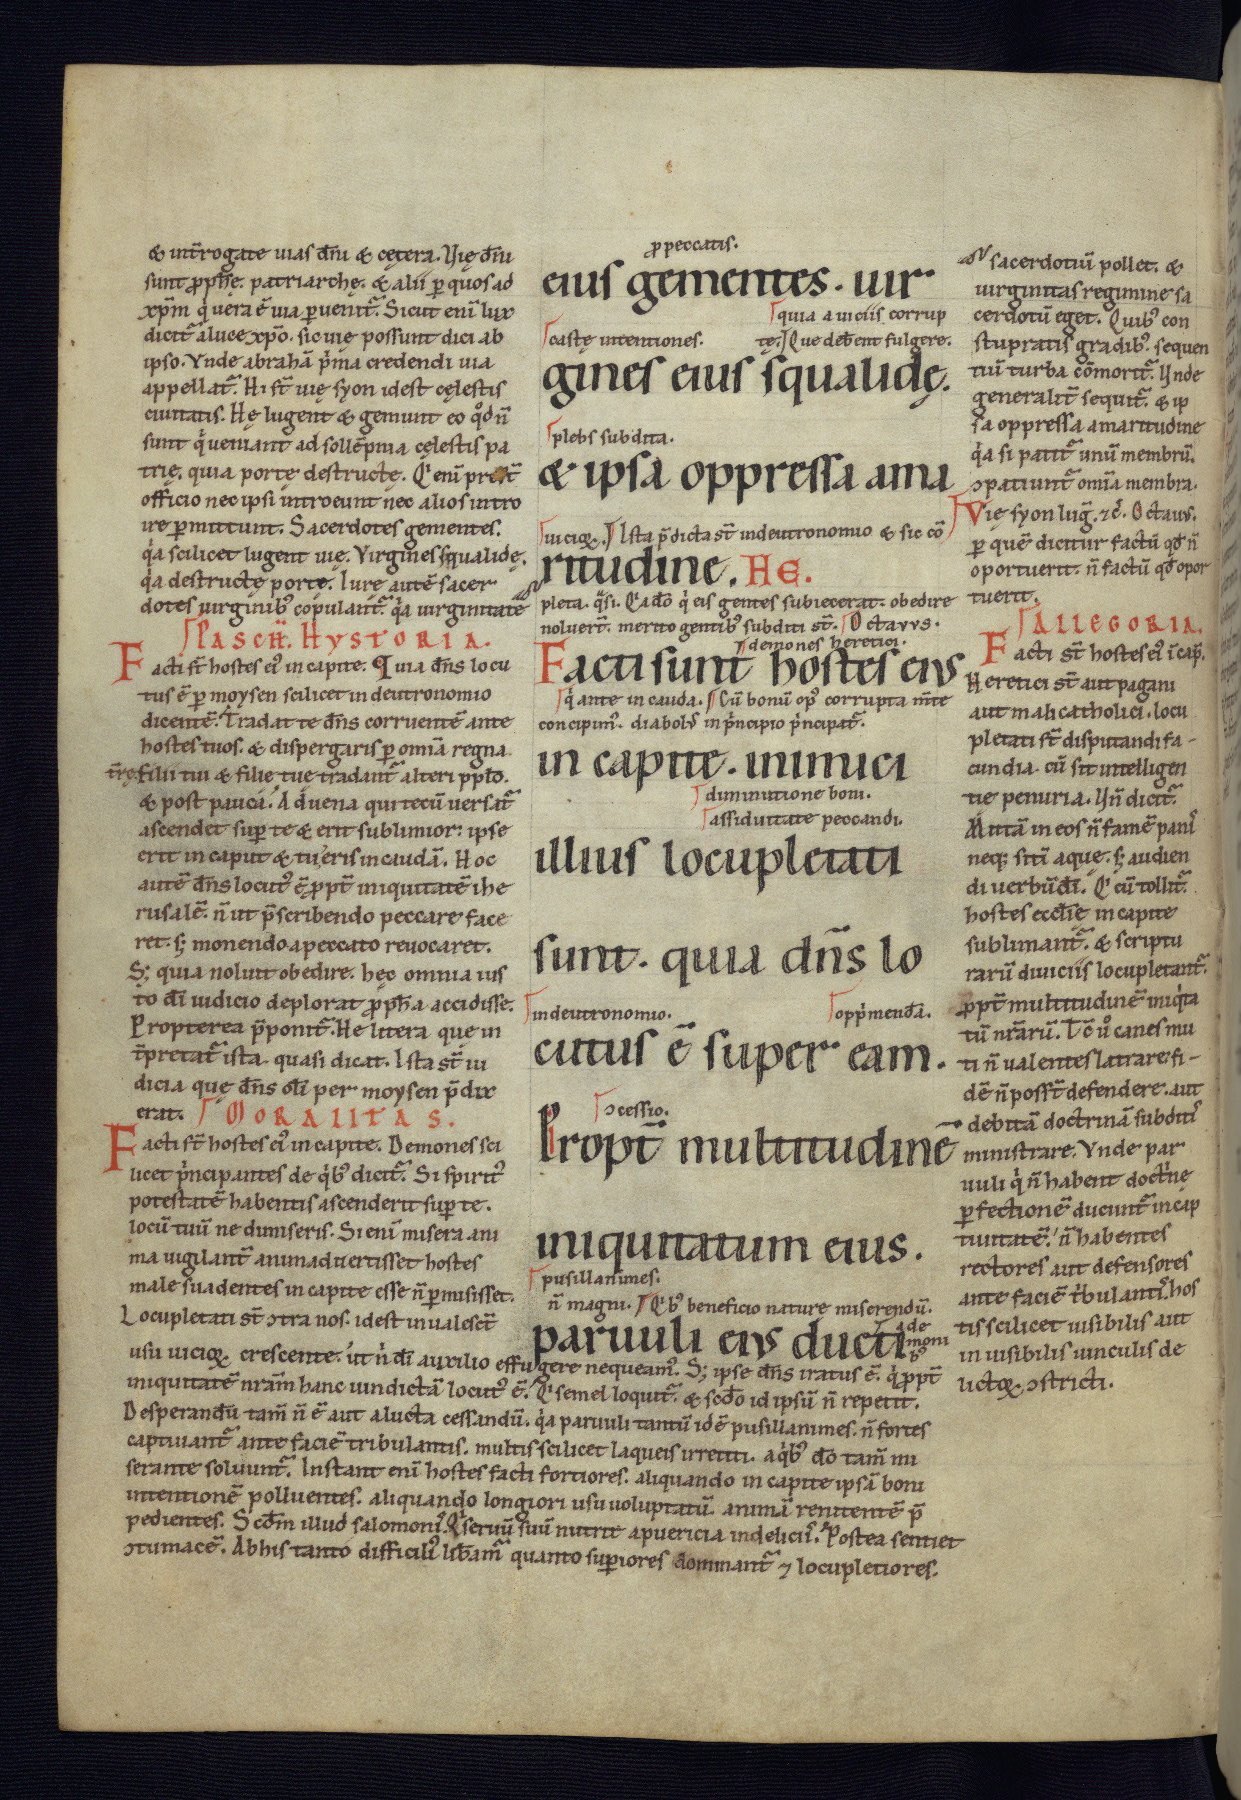 & int̄rogate uias dn̄i & cętera. Vię dn̄i
sunt ꝓphę. patriarchę. & alii ꝑ quos ad
xp̄m q̇ uera ē uia ꝑuenit᷑. Sicut eni᷑ lux
dicit᷑ a luce xp̄o. sic uię possunt dici ab
ipso. Vnde abrahā ṗma credendi uia
appellat᷑. Hi st̄ uię syon idest cęlestis
ciuitatis. Hę lugent & gemunt eo qd̄ n̄
sunt q̇ ueniant ad sollēpnia cęlestis pa
trię. quia portę destructę.
officio nec ipsi introeunt nec alios intro
ire ꝑmittunt. Sacerdotes gementes.
q̇a scilicet lugent uię. Virgines squalidę.
q̇a destructę portę. Iure autē sacer
dotes uirginib; copulant᷑ q̇a uirginitatē
PASCH. HYSTORIA.
Facti st̄ hostes ei᷒ in capite. Quia dn̄s locu
tus ē ꝑ moysen scilicet in deutronomio
dicentē. Tradat te dn̄s corruentē ante
hostes tuos. & dispergaris ꝑ omīa regna
t̄rę filii tui & filię tuę tradant᷑ alteri pplo.
& post pauca. Aduena qui tecū uersat᷑
ascendet suꝑ te & erit sublimior. ipse
erit in caput & tu eris in caudā. Hoc
autē dn̄s locut᷒ ē ꝓpt̄ iniquitatē ihe
rusalē. n̄ ut p̄scribendo peccare face
ret. s; monendo a peccato reuocaret.
S; quia noluit obedire. hęc omnia ius
to dī iudicio deplorat ꝓpha accidisse.
Propterea p̄ponit᷑. He litera que in
t̄pretat᷑ ista. quasi dicat. Ista st̄ iu
dicia quę dn̄s olī per moysen p̄dix
erat. MORALITAS.
Facti st̄ hostes ei᷒ in capite. Demones sci
licet ṗncipantes de q̇b᷒ dicit᷑. Si spirit᷒
potestatē habentis ascenderit suꝑ te.
locū tuū ne dimiseris. Si enī misera ani
ma uigilant᷑ animaduertisset hostes
male suadentes in capite esse n̄ ꝑmisisset.
Locupletati st̄ ↄtra nos. idest inualesct̄
usu uicioꝝ crescente. ut n̄ dī auxilio effugere nequeam᷒. S; ipse dn̄s iratus ē. q̇ ꝓpt̄
iniquitatē nram̄ hanc uindictā locut᷒ ē. Et semel loquit᷑. & scdo id ipsū n̄ repetit.
Desperandū tam̄ n̄ ē aut a lucta cessandū. q̇a paruuli tantū idē pusillanimes. n̄ fortes
captiuant᷑ ante faciē tribulantis. multis scilicet laqueis irretiti. a q̇b᷒ do tam̄ mi
serante soluunt᷑. Instant enī hostes facti fortiores. aliquando in capite ipsā boni
intentionē polluentes. aliquando longiori usu uoluptatū. animā renitentē p̄
pedientes. Scdm̄ illud salomoni᷒. Q̇ seruū suū nutrit a puericia in delicii᷒. Postea sentiet
ↄtumacē. Ab his tanto difficili᷒ lib̄am᷑ quanto suꝑiores dominant᷑ ⁊ locupletiores.
ꝓ peccatis.
eius gementes. uir
quia a uiciis corrup
castę intentiones. tę. Que deb̄ent fulgere.
gines eius squalidę.
plebs subdita.
& ipsa oppressa ama
uicioꝝ. Ista p̄dicta st̄ in deutronomio & sic cō
ritudine. HE.
pleta. q̇si. Ea do q̇ eis gentes subiecerat. obedire
noluert̄. merito gentib᷒ subditi st̄. Octauus.
demones heretici.
Facti sunt hostes eius
q̇ ante in cauda. Cū bonū op᷒ corrupta m̄te
concipim᷒. diabol᷒ in ṗncipio ṗncipat᷑.
in capite. inimici
diminutione boni.
assiduitate peccandi.
illius locupletati
sunt. quia dn̄s lo
in deutronomio. opṗmendā.
cutus ē super eam.
ↄcessio.
Propt̄ multitudinē
iniquitatum eius.
pusillanimes.
n̄ magni. Eb᷒ beneficio nature miserendū.
paruuli eius ducti
a de
moni
b᷒
sacerdotiū pollet. &
uirginitas regimine sa
cerdotū eget. Quib᷒ con
stupratis gradib᷒. sequen
tiū turba cōmorit᷑. Vnde
generalit̄ sequit᷑. & ip
sa oppressa amaritudine
q̇a si patit᷑ unū membrū.
ↄpatiunt᷑ omīa membra.
Vię syon luḡ. ⁊c̄. Octaus.
ꝑ quē dicitur factū qd̄ n̄
oportuerit. n̄ factū qd̄ opor
tuerit.
ALLEGORIA.
Facti st̄ hostes ei᷒ ī cap̄.
Heretici st̄ aut pagani
aut mali catholici. locu
pletati st̄ disputandi fa-
cundia. cū sit intelligen
tie penuria. Vn̄ dicit᷑.
Mittā in eos n̄ famē pani᷒
neq; sitī aque. s; audien
di uerbū dī. Et cū tollit᷑
hostes ecclie in capite
sublimant᷑. & scriptu
rarū diuiciis locupletant᷑.
ꝓpt̄ multitudinē iniq̇ta
tū nrarū. Id ē u᷒ canes mu
ti n̄ ualentes latrare. fi-
dē n̄ posst̄ defendere. aut
debitā doctrinā subditi᷒
ministrare. Vnde par
uuli q̇ n̄ habent docṫnę
ꝑfectionē ducunt᷑ in cap
tiuitatē. n̄ habentes
rectores aut defensores
ante faciē ṫbulanti᷒. hos
tis scilicet uisibilis aut
in uisibilis uinculis de
lictoꝝ ↄstricti.